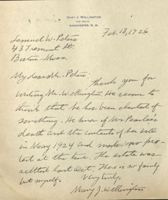 MARY J. WELLINGTON
Feb. 18, 1926
Samuel W. Peters
43 Tremont St.
Boston Mass.
My dear Mr. Peters
Thank you for
writing Mr. Wellington. He seems to
think that he has been cheated of
something. He knew of Mr.
death and the contents of his will
in May 1924 and made no pro-
test at the time. The estate was
settled last Oct. There is no family
but myself.
Very truly,
Mary J. Wellington